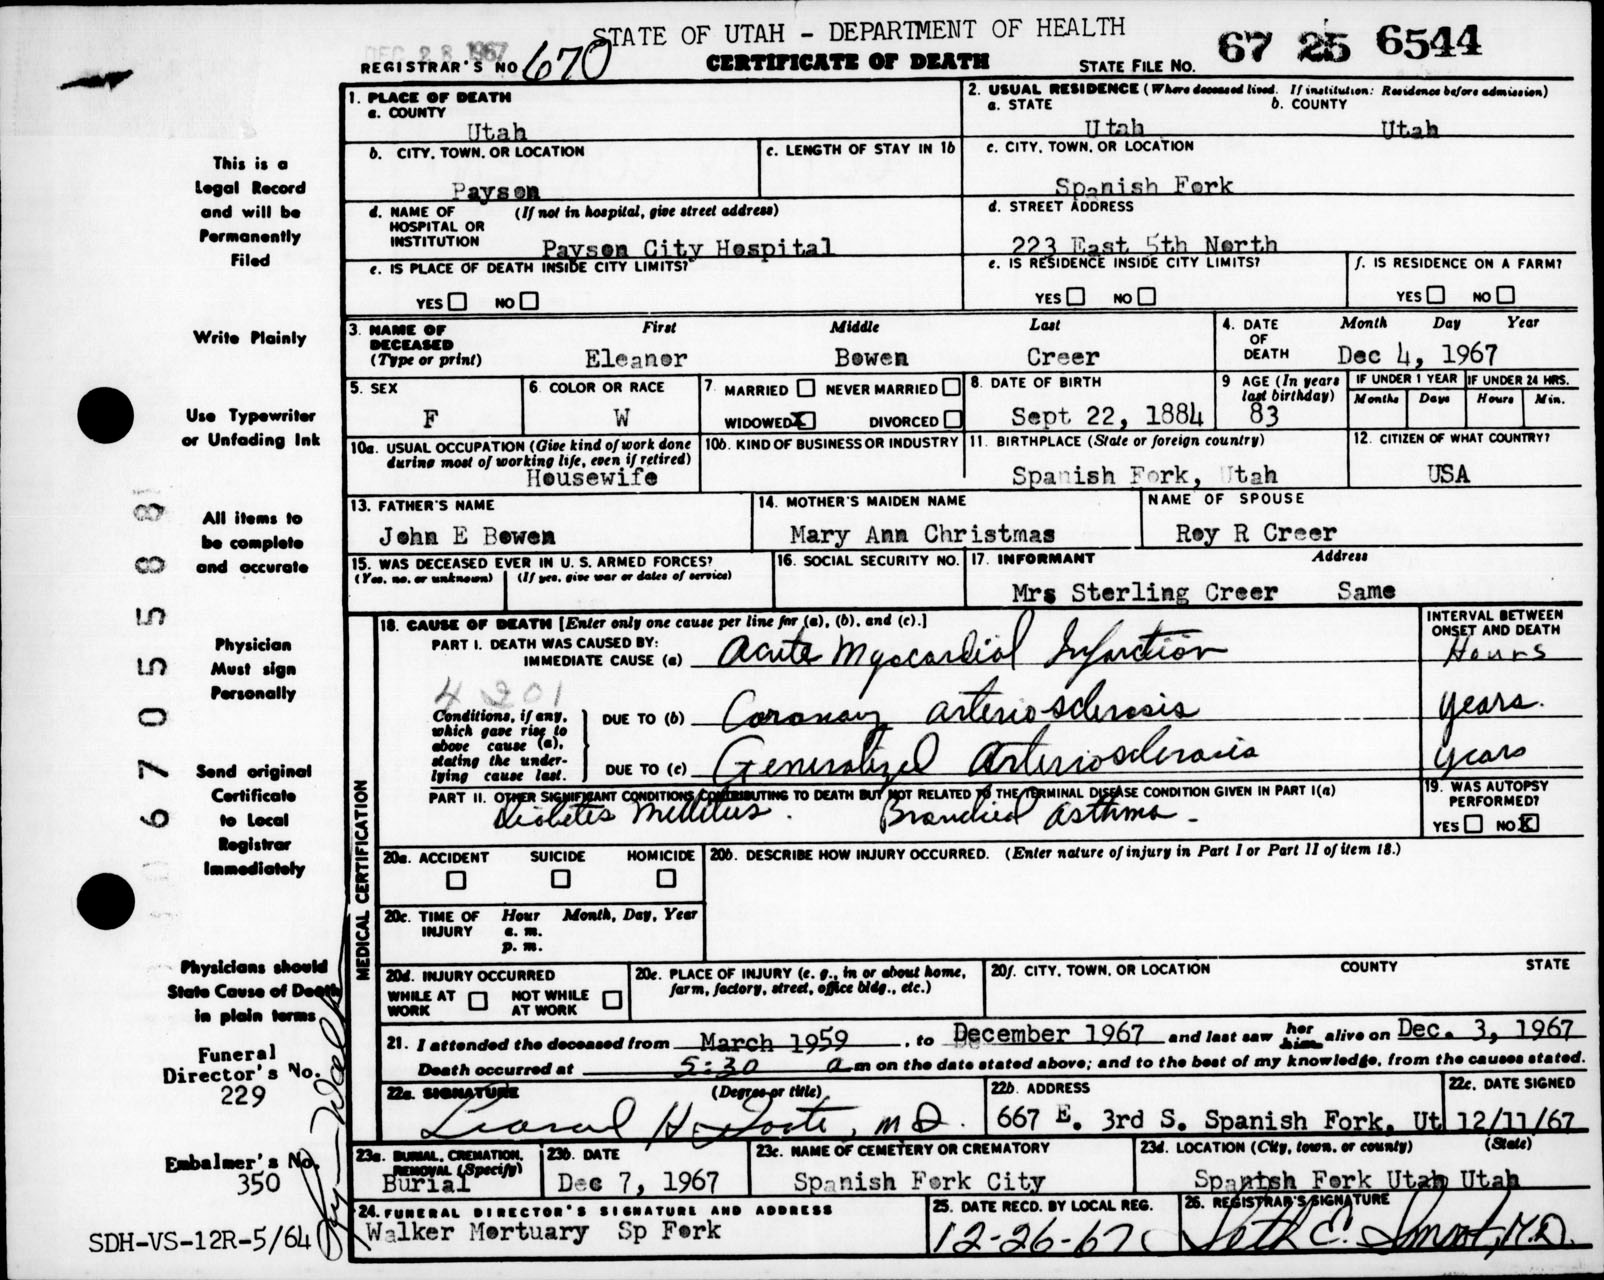 STATE OF UTAH - DEPARTMENT OF HEALTH
DEC 28 1967
REGISTRAR'S NO 670
CERTIFICATE OF DEATH
STATE FILE NO. 67 25 6544
1. PLACE OF DEATH
a. COUNTY
Utah
2. USUAL RESIDENCE (Where deceased lived. If institution: Residence before admission)
a. STATE b. COUNTY
Utah Utah
b. CITY, TOWN, OR LOCATION
Payson
c. LENGTH OF STAY IN 1b
c. CITY, TOWN, OR LOCATION
Spanish Fork
d. NAME OF HOSPITAL OR INSTITUTION (If not in hospital, give street address)
Payson City Hospital
d. STREET ADDRESS
223 East 5th North
e. IS PLACE OF DEATH INSIDE CITY LIMITS?
YES NO
e. IS RESIDENCE INSIDE CITY LIMITS?
YES NO
f. IS RESIDENCE ON A FARM?
YES NO
3. NAME OF DECEASED (Type or print)
First Middle Last
Eleanor Bowen Creer
4. DATE OF DEATH
Month Day Year
Dec 4, 1967
5. SEX
F
6. COLOR OR RACE
W
7. MARRIED NEVER MARRIED
WIDOWED X DIVORCED
8. DATE OF BIRTH
Sept 22, 1884
9 AGE (In years last birthday)
83
IF UNDER 1 YEAR IF UNDER 24 HRS.
Months Days Hours Min.
10a. USUAL OCCUPATION (Give kind of work done
during most of working life, even if retired)
Housewife
10b. KIND OF BUSINESS OR INDUSTRY
11. BIRTHPLACE (State or foreign country)
Spanish Fork, Utah
12. CITIZEN OF WHAT COUNTRY?
USA
13. FATHER'S NAME
John E Bowen
14. MOTHER'S MAIDEN NAME
Mary Ann Christmas
NAME OF SPOUSE
Roy R Creer
15. WAS DECEASED EVER IN U. S. ARMED FORCES?
(Yes, no, or unknown) (If yes, give war or dates of service)
16. SOCIAL SECURITY NO.
17. INFORMANT Address
Mrs Sterling Creer Same
MEDICAL CERTIFICATION
18. CAUSE OF DEATH [Enter only one cause per line for (a), (b), and (c).]
INTERVAL BETWEEN ONSET AND DEATH
PART I. DEATH WAS CAUSED BY:
IMMEDIATE CAUSE (a) Acute Myocardial Infarction Hours
4201
Conditions, if any,
which gave rise to
above cause (a),
stating the under-
lying cause last.
DUE TO (b) Coronary arteriosclerosis years.
DUE TO (c) Generalized Arteriosclerosis years
PART II. OTHER SIGNIFICANT CONDITIONS CONTRIBUTING TO DEATH BUT NOT RELATED TO THE TERMINAL DISEASE CONDITION GIVEN IN PART I(a)
Diabetes Mellitus. Bronchial Asthma -
19. WAS AUTOPSY PERFORMED?
YES NO X
20a. ACCIDENT SUICIDE HOMICIDE
20b. DESCRIBE HOW INJURY OCCURRED. (Enter nature of injury in Part I or Part II of item 18.)
20c. TIME OF INJURY Hour Month, Day, Year
a. m.
p. m.
20d. INJURY OCCURRED
WHILE AT WORK NOT WHILE AT WORK
20e. PLACE OF INJURY (e. g., in or about home,
farm, factory, street, office bldg., etc.)
20f. CITY, TOWN, OR LOCATION COUNTY STATE
21. I attended the deceased from March 1959, to December 1967 and last saw her him alive on Dec. 3, 1967
Death occurred at 5:30 a m on the date stated above; and to the best of my knowledge, from the causes stated.
22a. SIGNATURE (Degree or title)
M D.
22b. ADDRESS
667 E. 3rd S. Spanish Fork, Ut
22c. DATE SIGNED
12/11/67
23a. BURIAL, CREMATION, REMOVAL (Specify)
Burial
23b. DATE
Dec 7, 1967
23c. NAME OF CEMETERY OR CREMATORY
Spanish Fork City
23d. LOCATION (City, town, or county) (State)
Spanish Fork Utah Utah
24. FUNERAL DIRECTOR'S SIGNATURE AND ADDRESS
Walker Mortuary Sp Fork
25. DATE RECD. BY LOCAL REG.
12-26-67
26. REGISTRAR'S SIGNATURE
Seth E. Smoot, M.D.
This is a
Legal Record
and will be
Permanently
Filed
Write Plainly
Use Typewriter
or Unfading Ink
All items to
be complete
and accurate
Physician
Must sign
Personally
Send original
Certificate
to Local
Registrar
Immediately
Physicians should
State Cause of Death
in plain terms
Funeral
Director's No.
229
Embalmer's No.
350
SDH-VS-12R-5/64
67055588